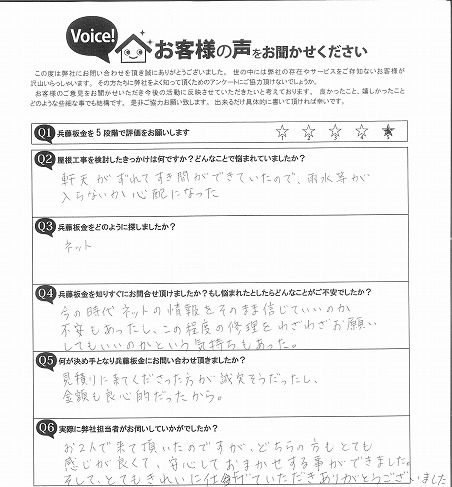 Voice!
お客様の声をお聞かせください
この度は弊社にお問い合わせを頂き誠にありがとうございました。世の中には弊社の存在やサービスをご存知ないお客様が
沢山いらっしゃいます。その方たちに弊社をよく知って頂くためのアンケートにご協力頂けないでしょうか。
お客様のご意見をお聞かせいただき今後の活動に反映させていただきたいと考えております。良かったこと、嬉しかったこと
どのような些細な事でも結構です。是非ご協力お願い致します。出来るだけ具体的に書いて頂ければ幸いです。
Q1 兵藤板金を5段階で評価をお願いします ☆ ☆ ☆ ☆ ★
Q2 屋根工事を検討したきっかけは何ですか?どんなことで悩まれていましたか?
軒天がずれてすき間ができていたので、雨水等が
入らないか心配になった
Q3 兵藤板金をどのように探しましたか?
ネット
Q4 兵藤板金を知りすぐにお問合せ頂けましたか?もし悩まれたとしたらどんなことがご不安でしたか?
今の時代ネットの情報をそのまま信じていいのか
不安もあったし、この程度の修理をわざわざお願い
してもいいのかという気持ちもあった。
Q5 何が決め手となり兵藤板金にお問い合わせ頂けましたか?
見積りに来てくださった方が誠実そうだったし、
金額も良心的だったから。
Q6 実際に弊社担当者がお伺いしていかがでしたか?
お2人で来て頂いたのですが、どちらの方もとても
感じが良くて、安心しておまかせする事ができました。
そして、とてもきれいに仕上げていただきありがとうございました